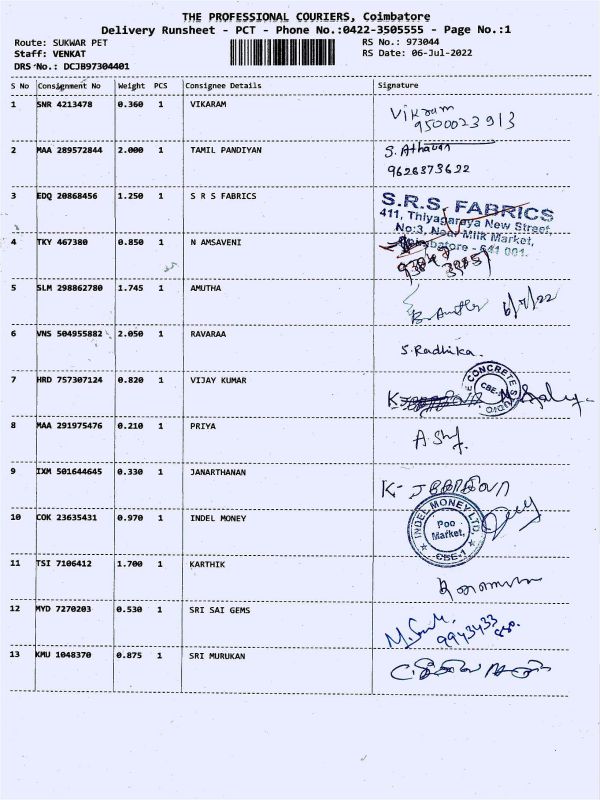 THE PROFESSIONAL COURIERS, Coimbatore
Delivery Runsheet - PCT - Phone No.:0422-3505555 - Page No.:1
Route: SUKWAR PET
RS No.: 973044
Staff: VENKAT
RS Date: 06-Jul-2022
DRS No.: DCJB97304401
S No Consignment No Weight PCS Consignee Details Signature
1 SNR 4213478 0.360 1 VIKARAM Vikram
9500023913
2 MAA 289572844 2.000 1 TAMIL PANDIYAN S. Athavan
9626873622
3 EDQ 20868456 1.250 1 S R S FABRICS S.R.S. FABRICS
411, Thiyagaraya New Street,
No:3, Near Milk Market,
Coimbatore - 641 001.
4 TKY 467380 0.850 1 N AMSAVENI
5 SLM 298862780 1.745 1 AMUTHA 6/7/22
6 VNS 504955882 2.050 1 RAVARAA S. Radhika.
7 HRD 757307124 0.820 1 VIJAY KUMAR CONCRETE STUDIO CBE-1
8 MAA 291975476 0.210 1 PRIYA
9 IXM 501644645 0.330 1 JANARTHANAN
10 COK 23635431 0.970 1 INDEL MONEY INDEL MONEY LTD. Poo Market, CBE-1
11 TSI 7106412 1.700 1 KARTHIK
12 MYD 7270203 0.530 1 SRI SAI GEMS
13 KMU 1048370 0.875 1 SRI MURUKAN